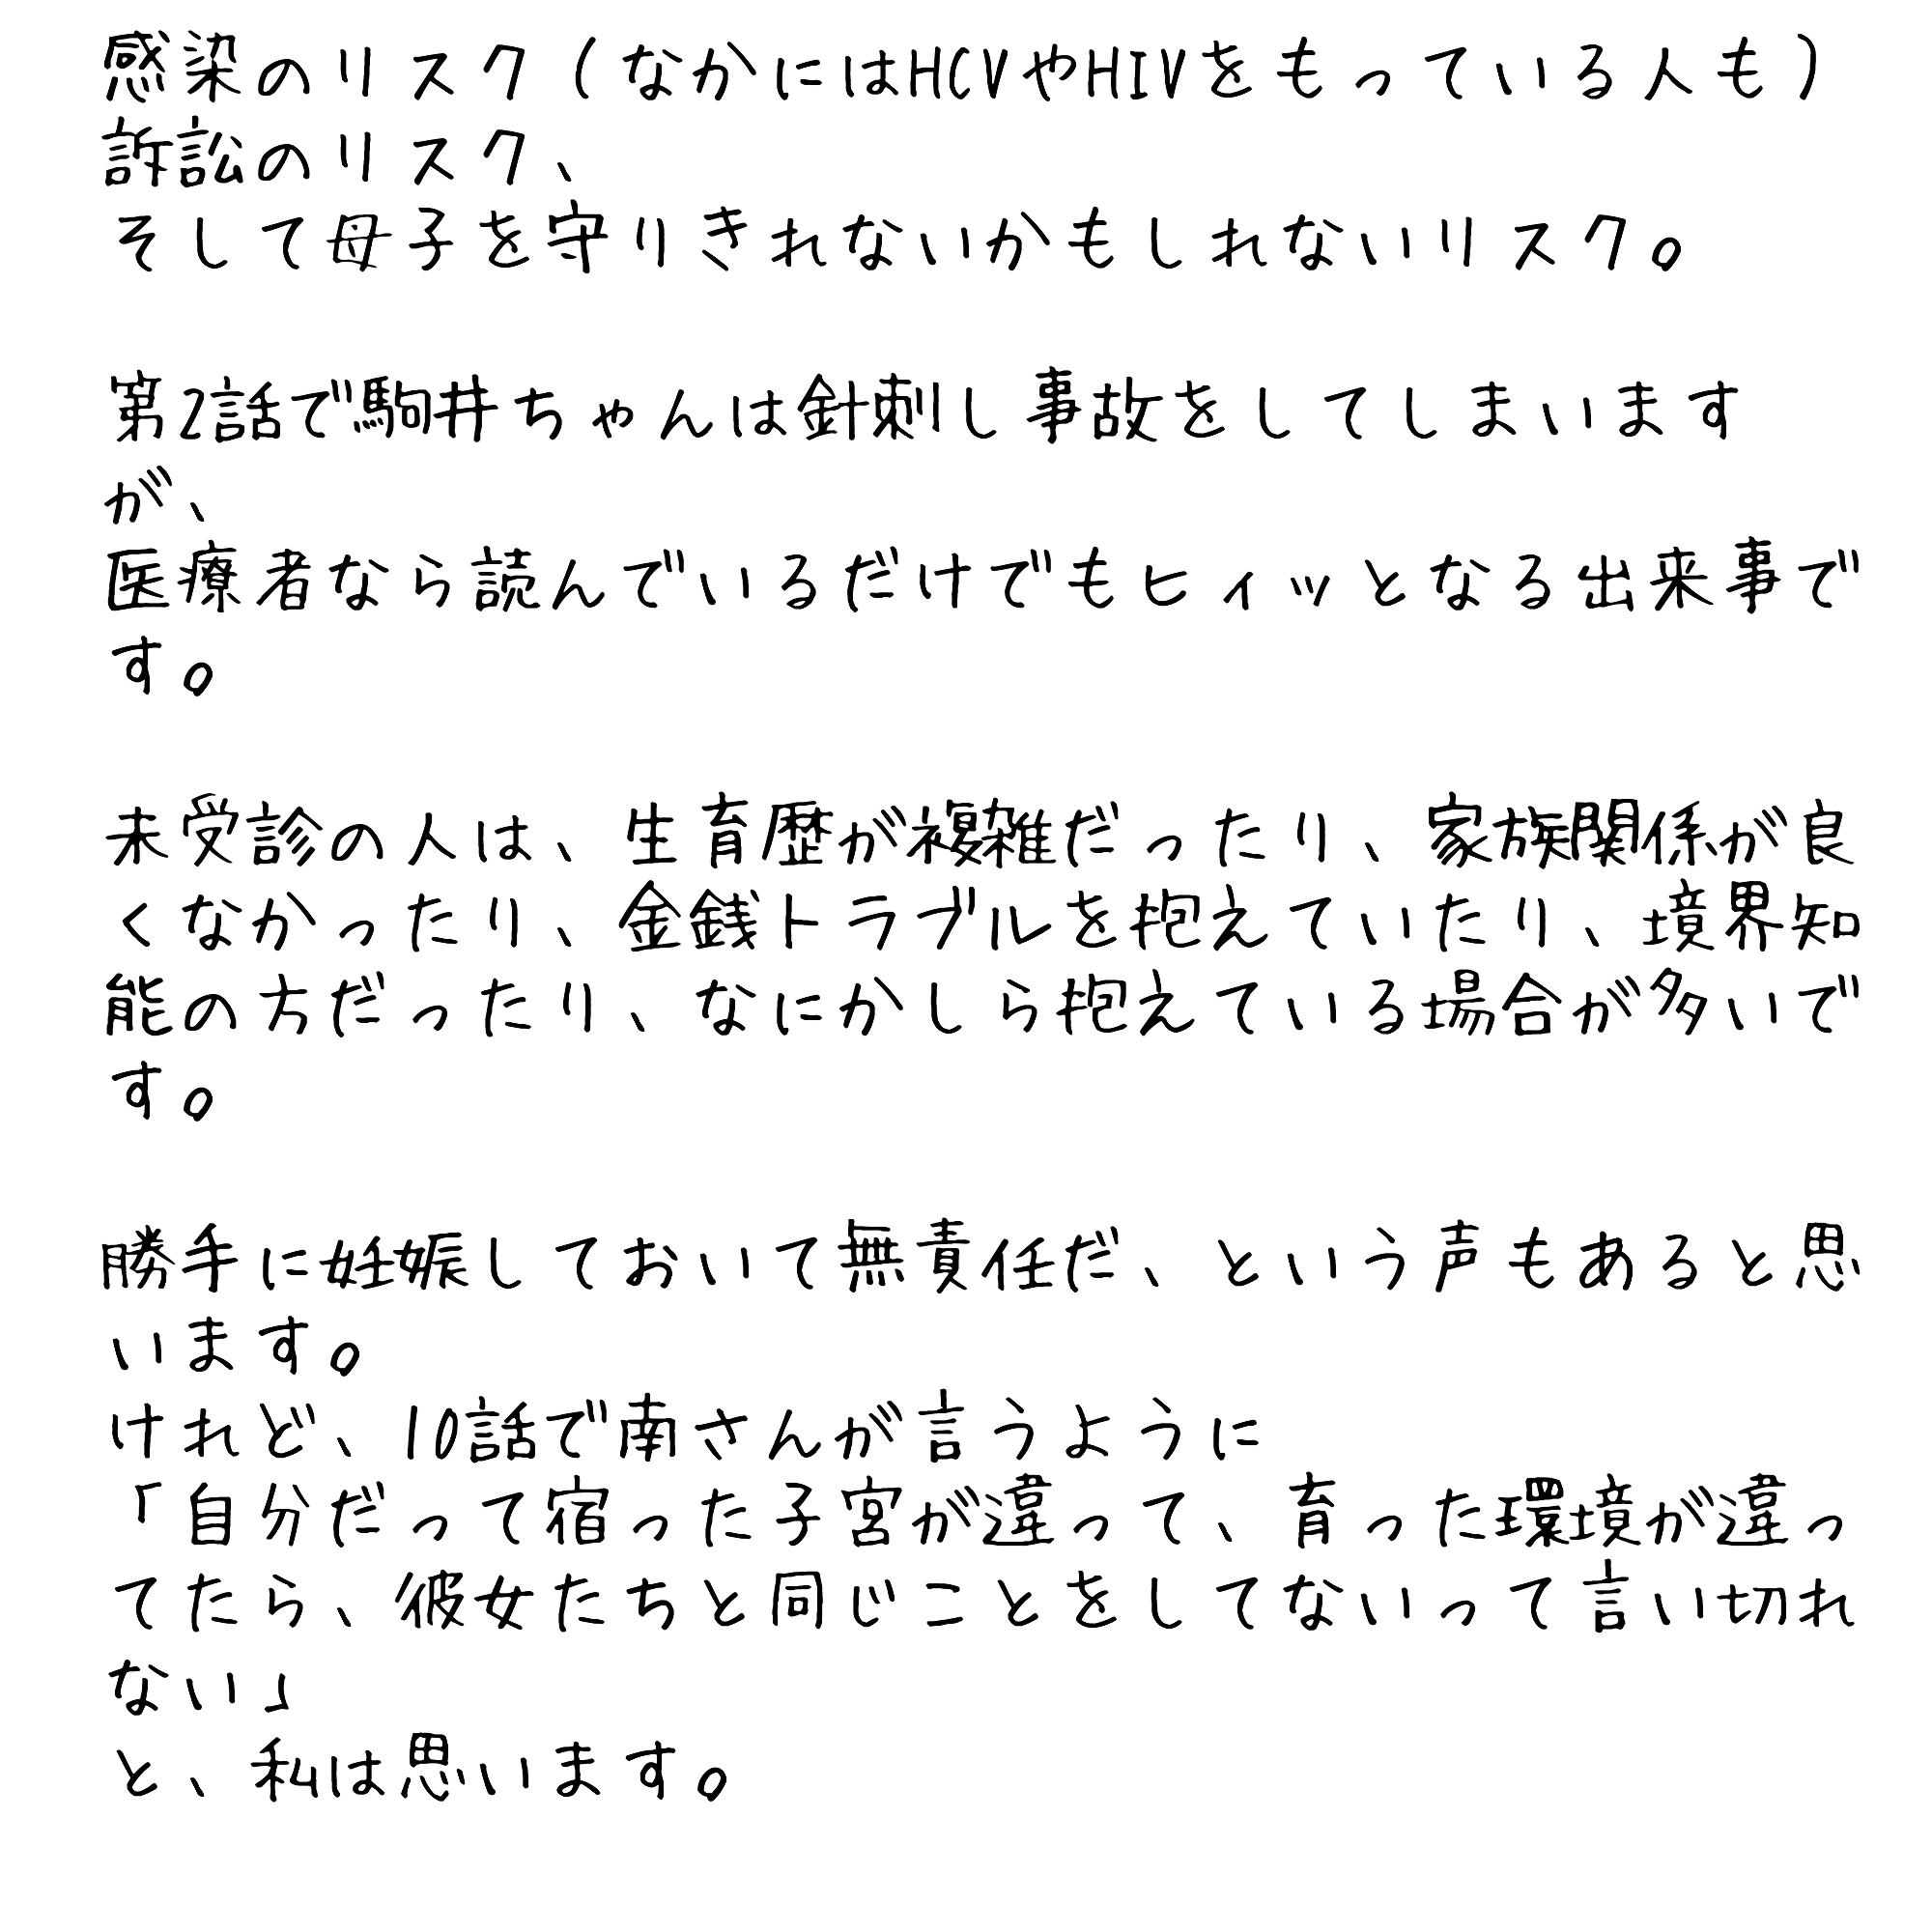 感染のリスク（なかにはHCVやHIVをもっている人も）
訴訟のリスク、
そして母子を守りきれないかもしれないリスク。
第2話で駒井ちゃんは針刺し事故をしてしまいます
が、
医療者なら読んでいるだけでもヒィッとなる出来事で
す。
未受診の人は、生育歴が複雑だったり、家族関係が良
くなかったり、金銭トラブルを抱えていたり、境界知
能の方だったり、なにかしら抱えている場合が多いで
す。
勝手に妊娠しておいて無責任だ、という声もあると思
います。
けれど、10話で南さんが言うように
「自分だって宿った子宮が違って、育った環境が違っ
てたら、彼女たちと同じことをしてないって言い切れ
ない」
と、私は思います。